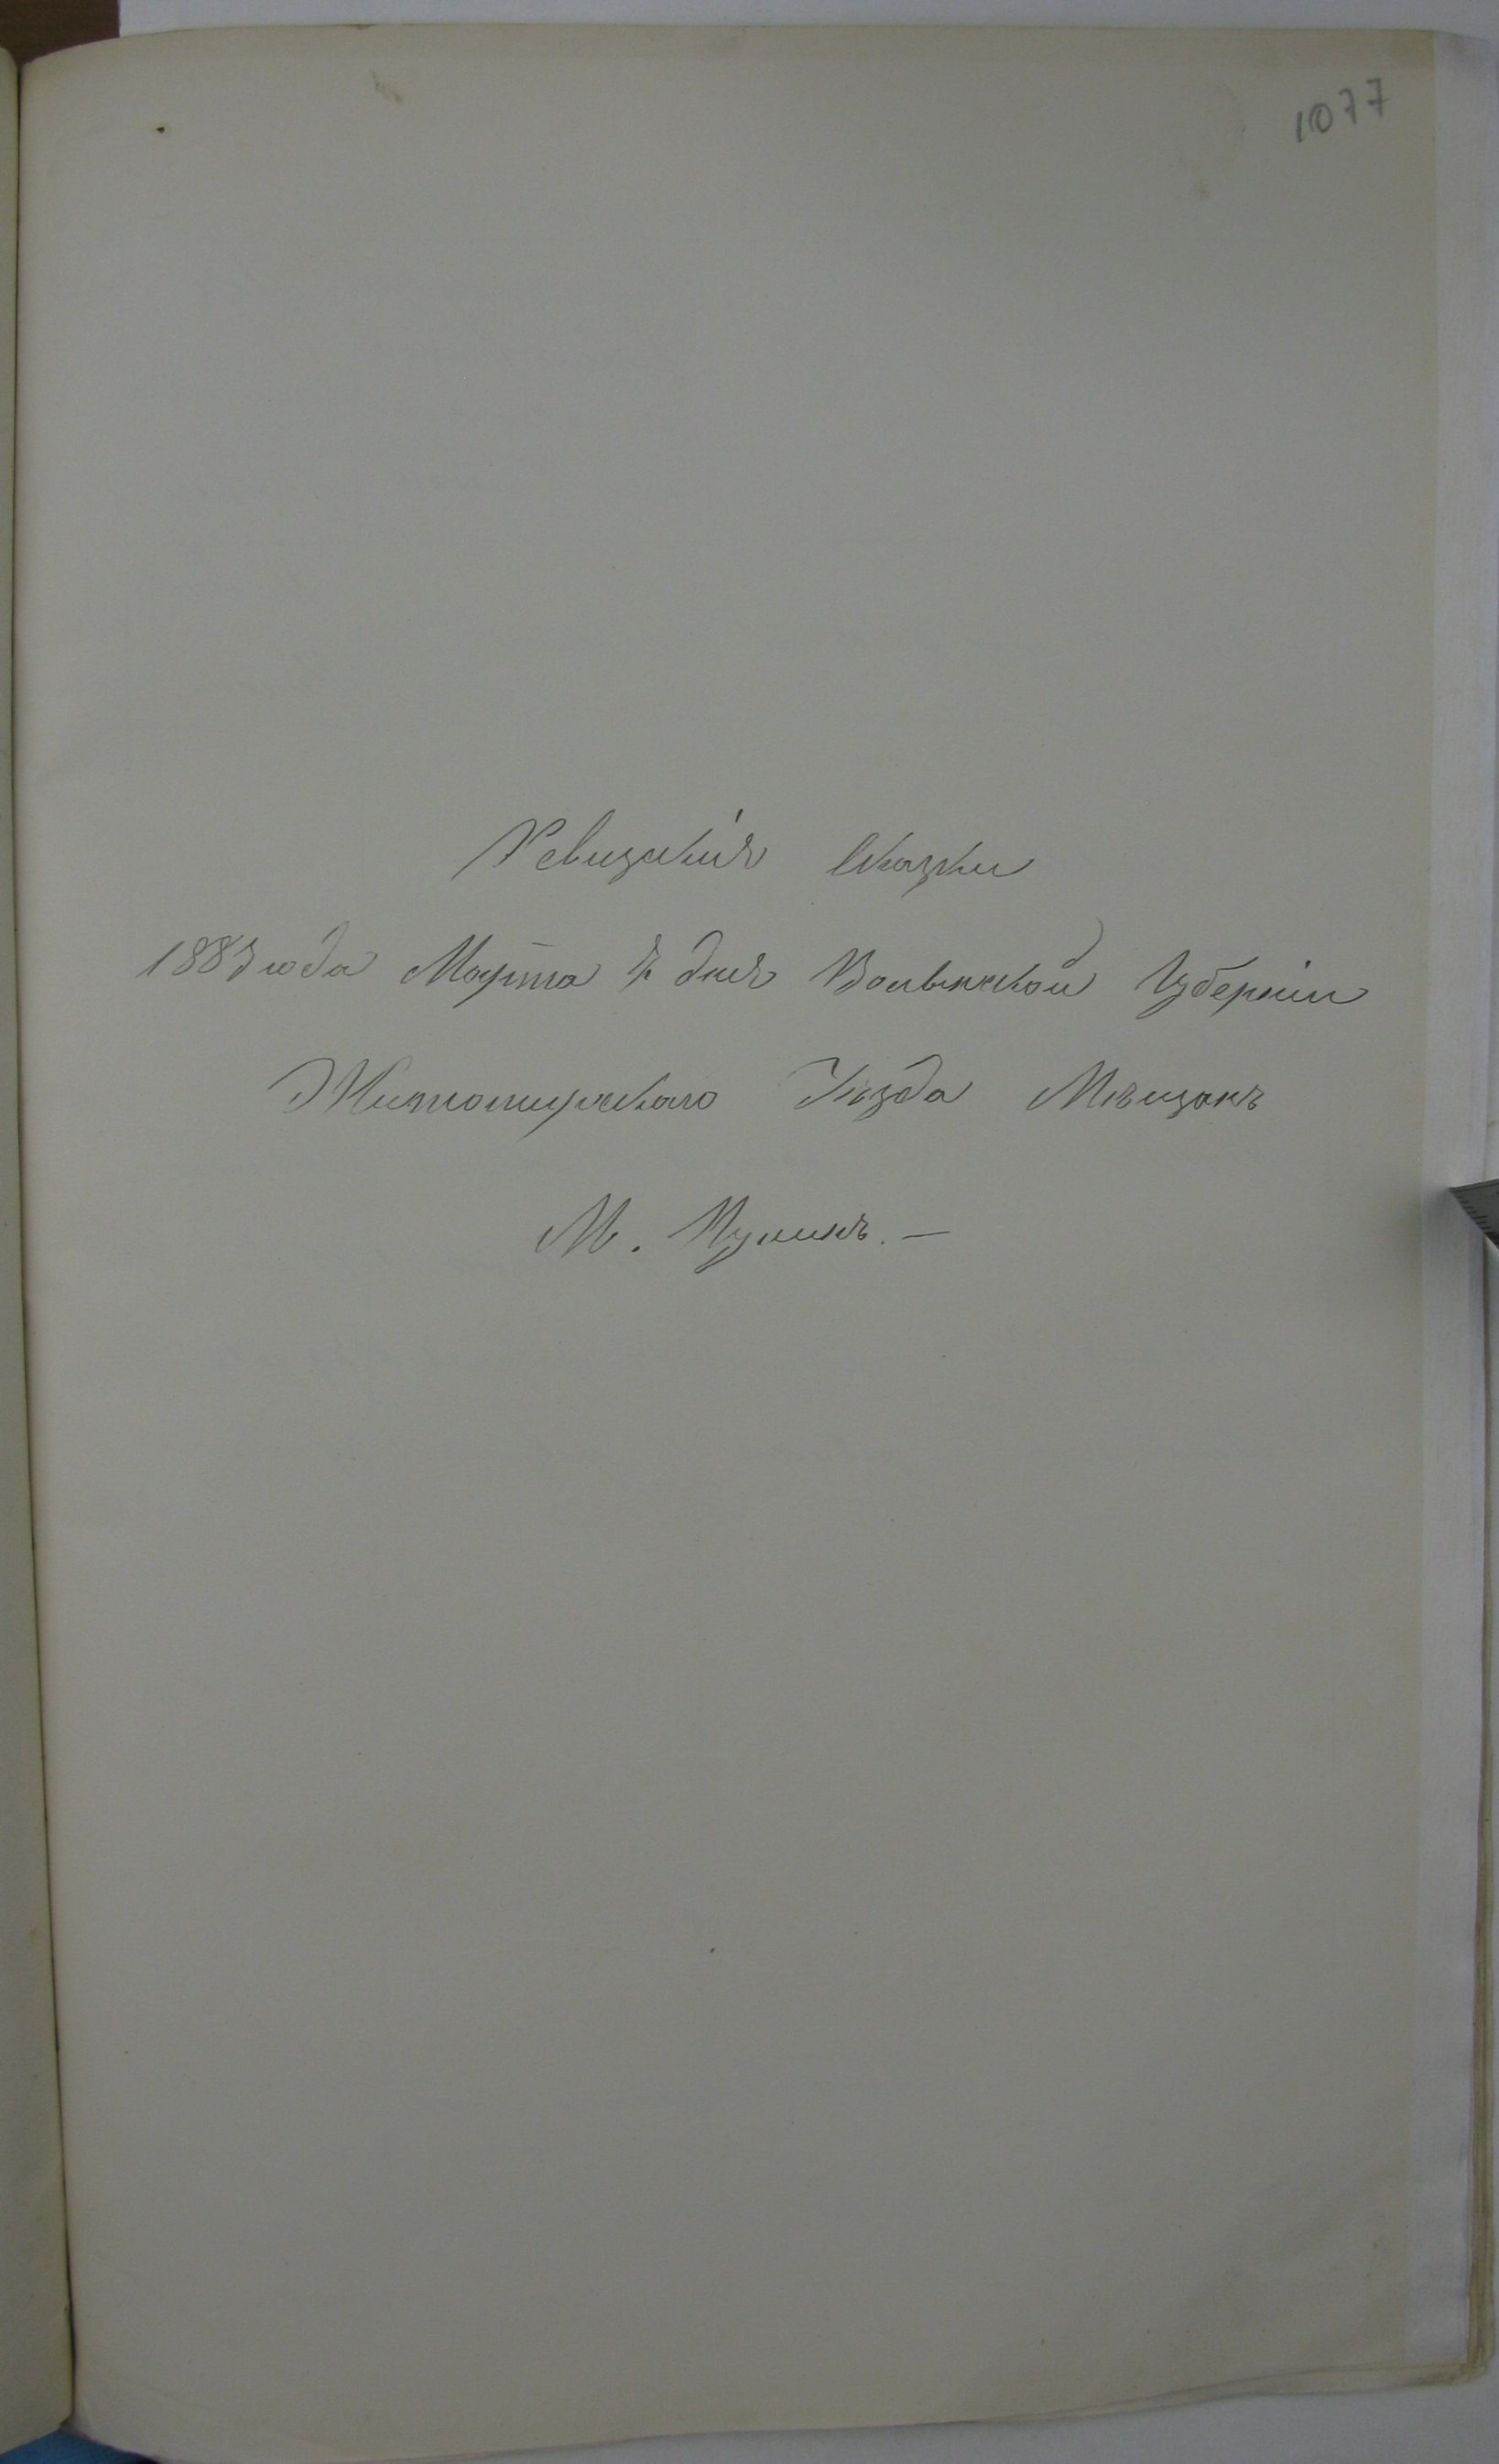 1077
Ревизскія Сказки
1883 года Марта дня Волынской Губерніи
Житомирскаго Уѣзда Мѣщанъ
М. Пулинъ. —